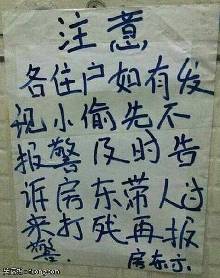 注意
各住户如有发
现小偷先不
报警及时告
诉房东带人过
来打残再报
警
房东六